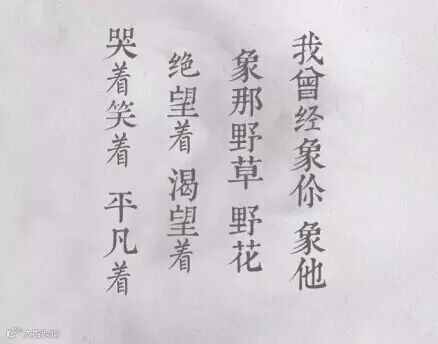 我曾经象你 象他
象那野草 野花
绝望着 渴望着
哭着笑着 平凡着